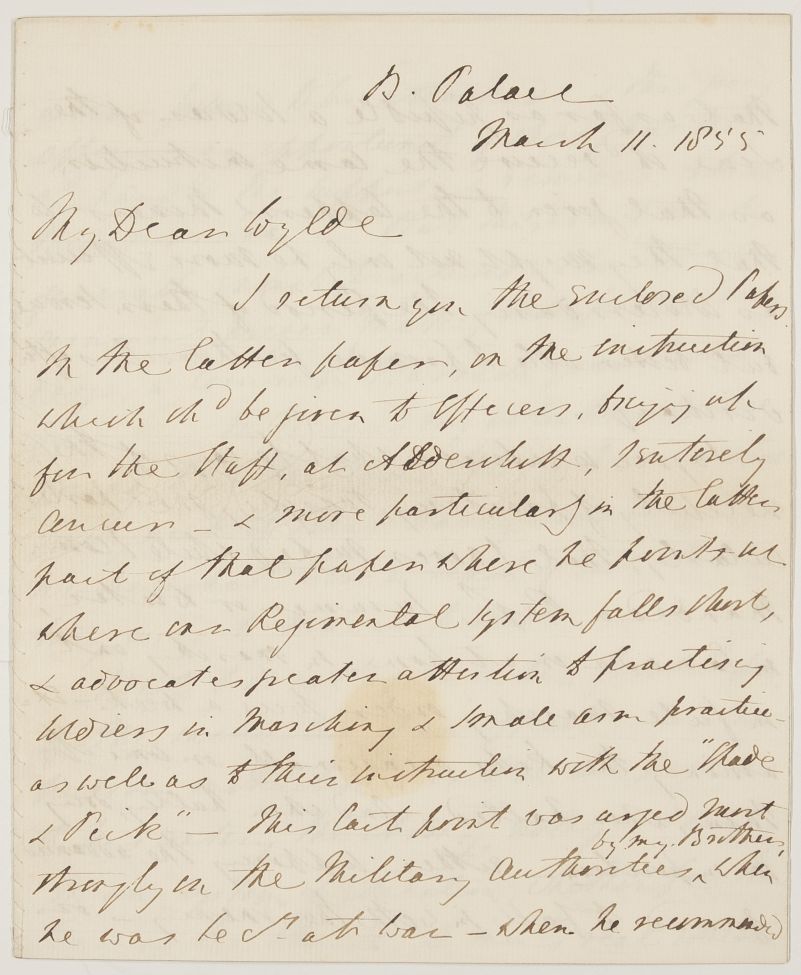 B. Palace
March 11. 1855
My Dear Wylde
I return you the enclosed Papers
In the latter paper, on the instruction
which shd be given to Officers, bringing up
for the Staff, at Aldershott, I entirely
concur - & more particularly in the latter
part of that paper where he points out
where our Regimental System falls short,
& advocates greater attention to practising
Soldiers in Marching & small arm practice -
as well as to their instruction with the "Spade
& Pick" - This last point was urged most
by my Brother,
strongly on the Military Authorities, ^ when
he was Secy at War - when he recommended